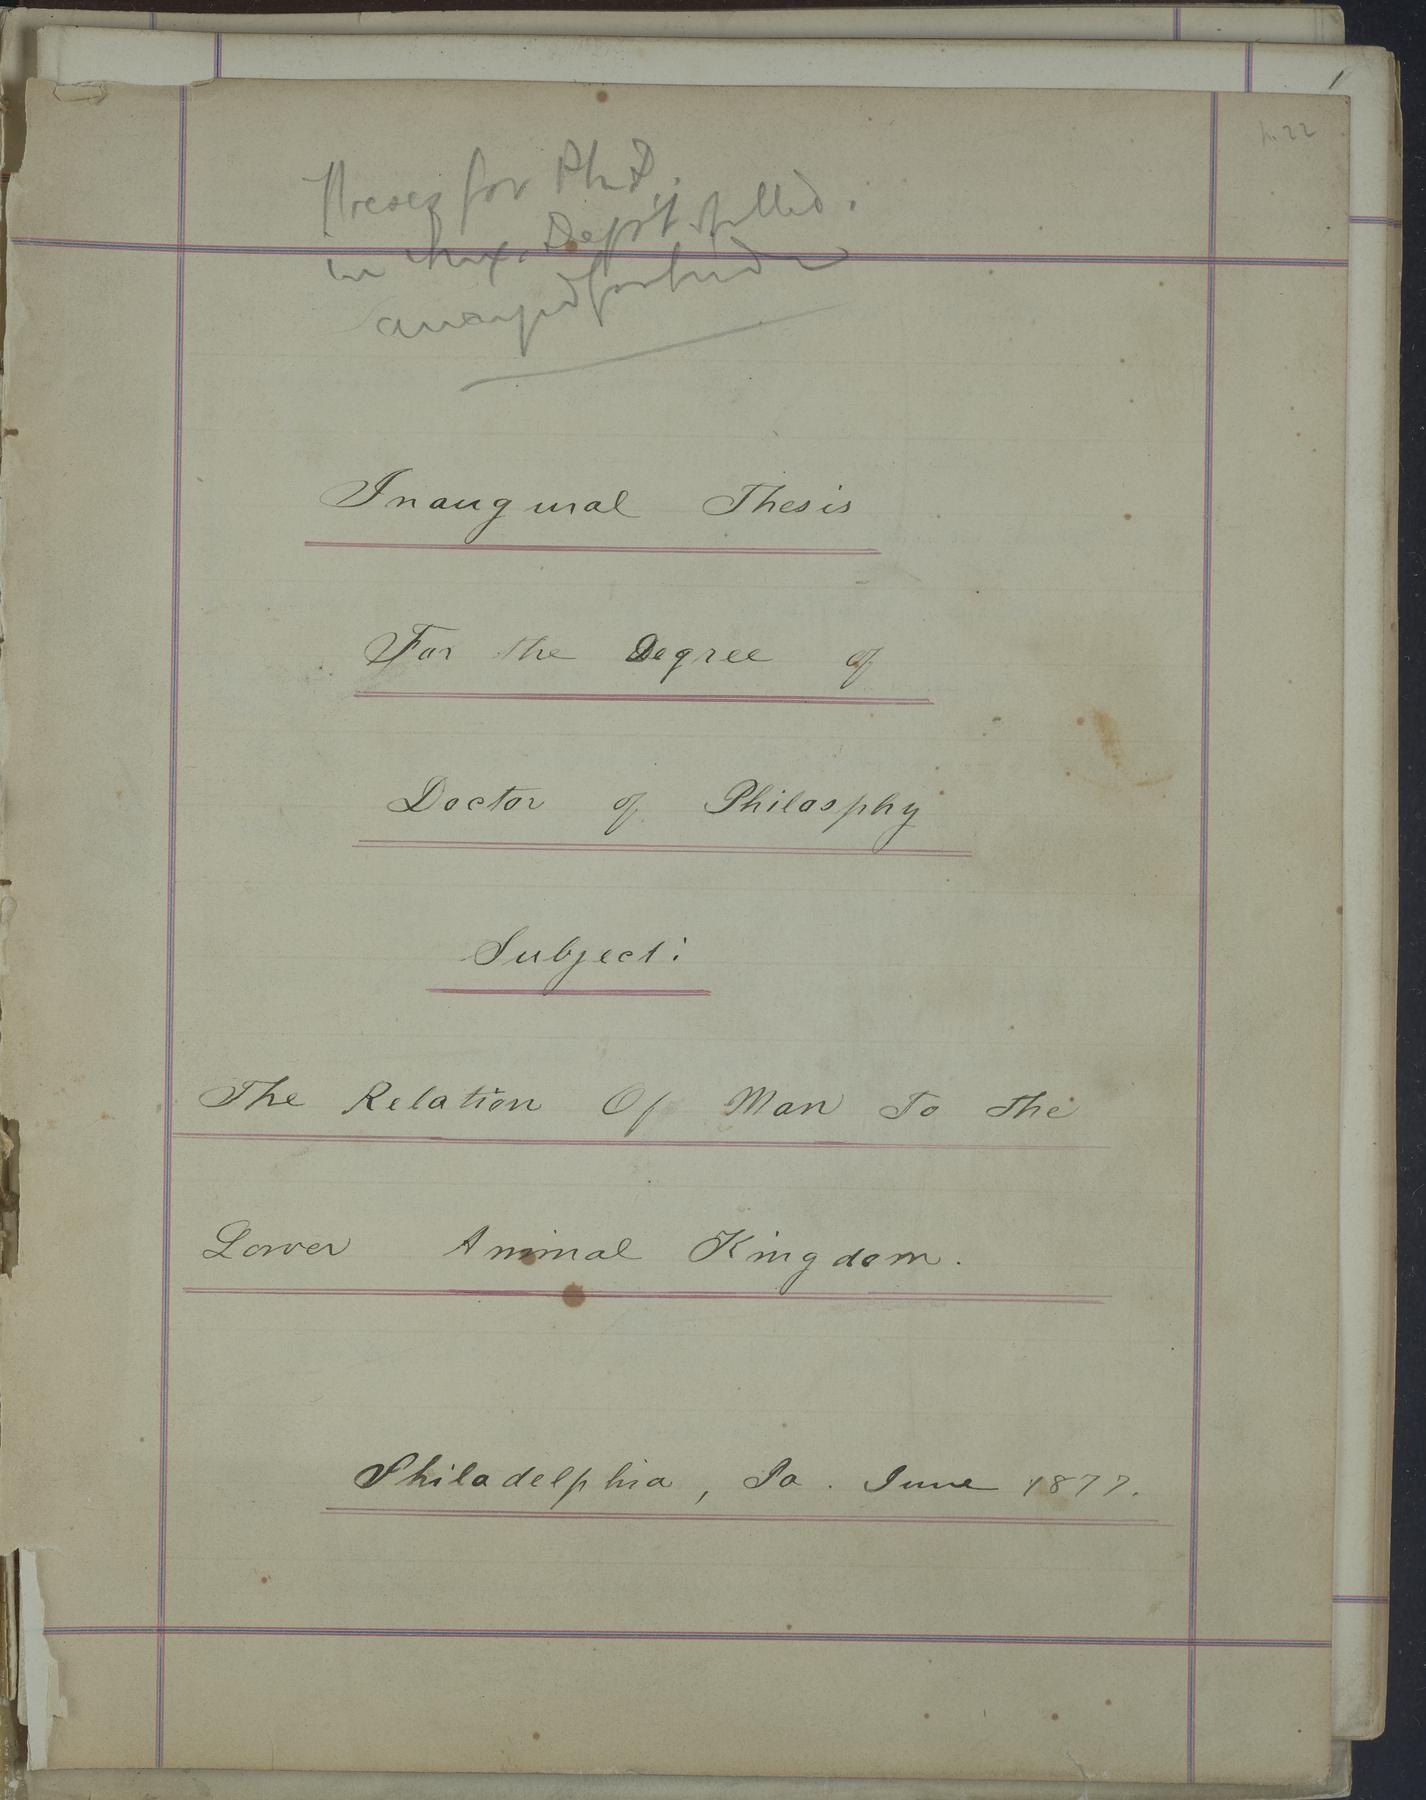 1
Theses for Ph.D.
in Aux. Dep't
Inaugural Thesis
For the Degree of
Doctor of Philosphy
Subject:
The Relation Of Man To The
Lower Animal Kingdom.
Philadelphia, Pa. June 1877.